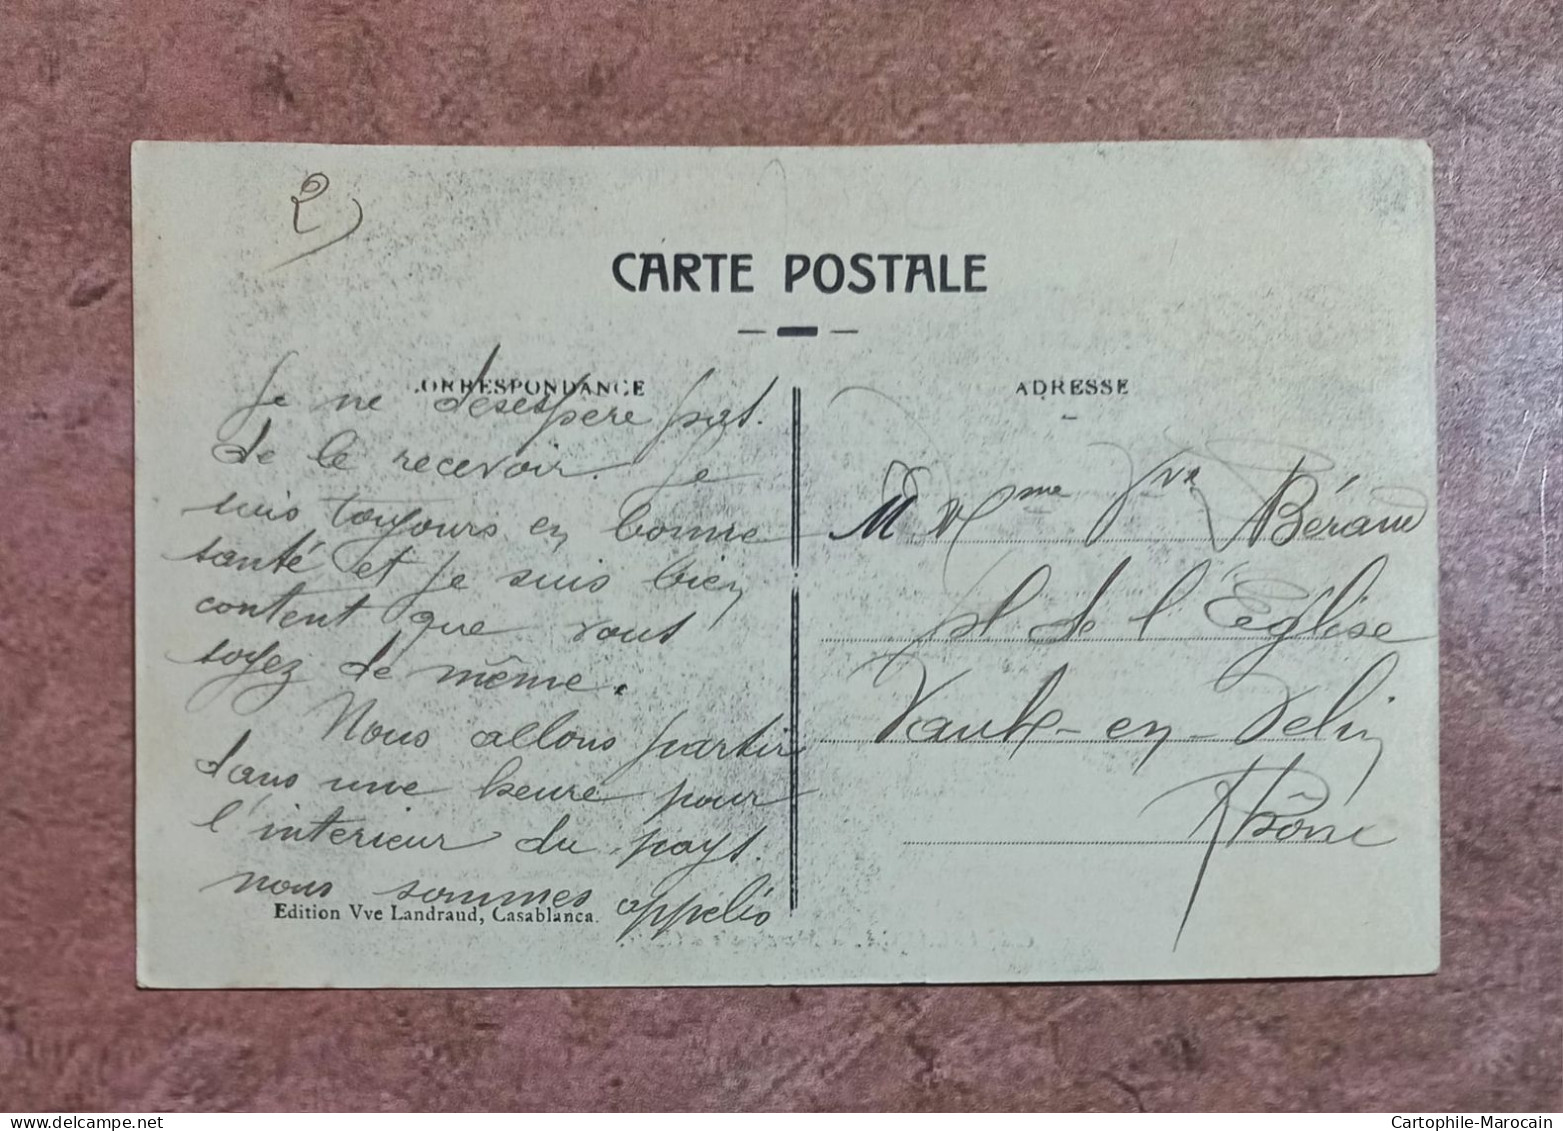 2)
CARTE POSTALE
CORRESPONDANCE
Je ne desespère pas.
de le recevoir. Je
suis toujours en bonne
santé et je suis bien
content que vous
soyez de même.
Nous allons partir
dans une heure pour
l'interieur du pays.
nous sommes appelés
Edition Vve Landraud, Casablanca.
ADRESSE
M Mme Vve Béraud
pl de l'Église
Vaulx-en-Velin
Rhône
www.delcampe.net
Cartophile-Marocain